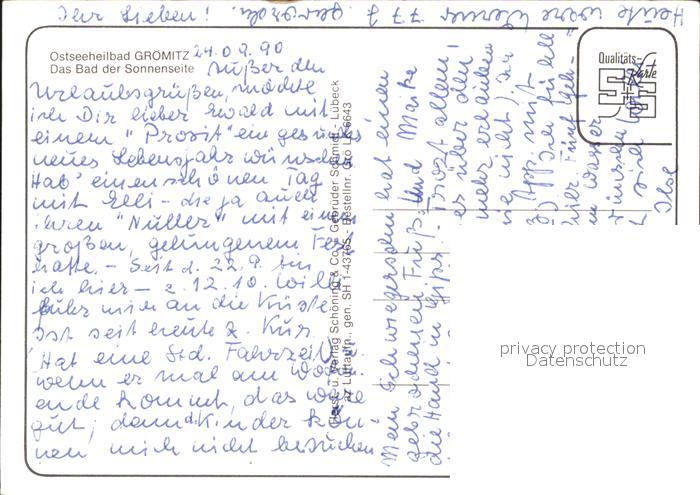 Ihr Lieben!
Heute wäre Werner 77 J. geworden.
Ostseeheilbad GRÖMITZ 24.09.90
Das Bad der Sonnenseite
Außer den
Urlaubsgrüßen, möchte
ich Dir lieber Ewald mit
einem "Prosit" ein gesundes
neues Lebensjahr wünschen
Hab' einen schönen Tag
mit Elli - die ja auch
ihren "Nuller" mit einem
großen, gelungenem Fest
hatte. - Seit d. 22.9. bin
ich hier - z. 12.10. Willi
fuhr mich an die Küste
Ist seit heute z. Kur
Hat eine Std. Fahrzeit
wenn er mal am Wochen
ende kommt, das wäre
gut; denn d. Kinder kön
nen mich nicht besuchen
Mein Schwiegersohn hat einen
gebrochenen Fuß. Und Meike
die Hand in Gips. - Trotz allem!
es über den
mehr erlauben
nicht) in
App. mit
für
hier
Wasser
müssen
Ilse
Foto u. Verlag Schöning & Co. + Gebrüder Schmidt - Lübeck
Luftaufn. gen. SH 1-43765 - Bestellnr. Grö LU 6643
Qualitäts-
Karte
S+S
privacy protection
Datenschutz